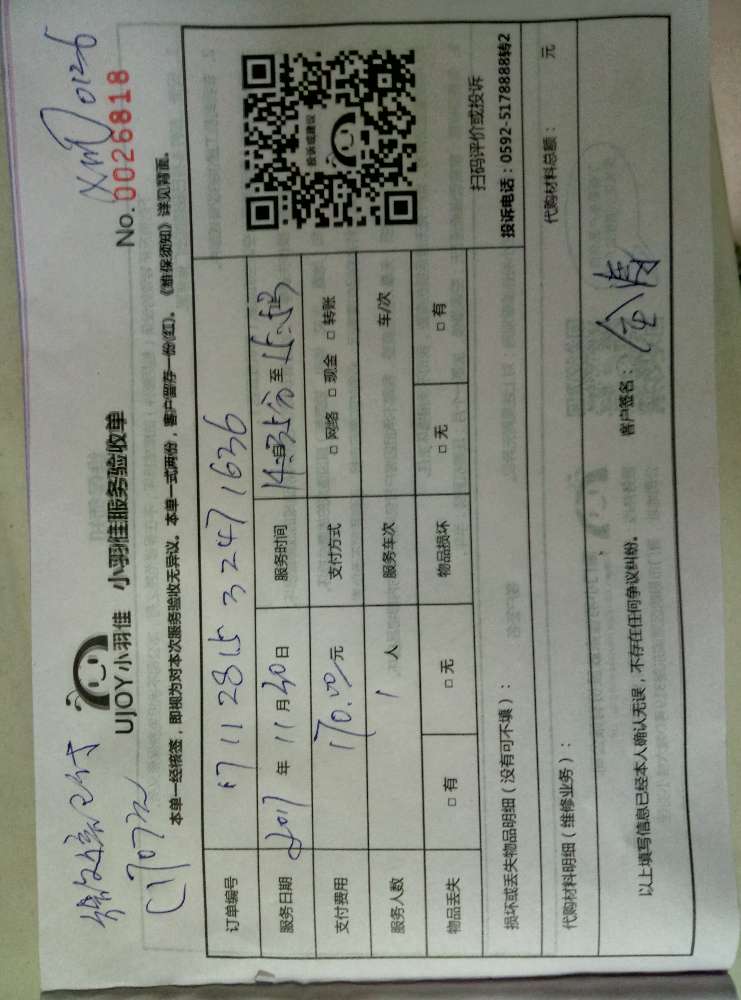 XM 0126
(170元
UJOY小羽佳 小羽佳服务验收单
No. 0026818
本单一经核签，即视为对本次服务验收无异议。本单一式两份，客户留存一份(红)。《维保须知》详见背面。
订单编号 1711281532471636
服务日期 2017 年 11 月 30 日 服务时间 14:35分 至 15:53
支付费用 170.00 元 支付方式 □ 网络 □ 现金 □ 转账
服务人数 1 人 服务车次 车/次
物品丢失 □ 有 □ 无 物品损坏 □ 无 □ 有
投诉或建议
扫码评价或投诉
投诉电话：0592-5178888转2
损坏或丢失物品明细（没有可不填）：
代购材料明细（维修业务）： 代购材料总额： 元
以上填写信息已经本人确认无误，不存在任何争议纠纷。 客户签名：